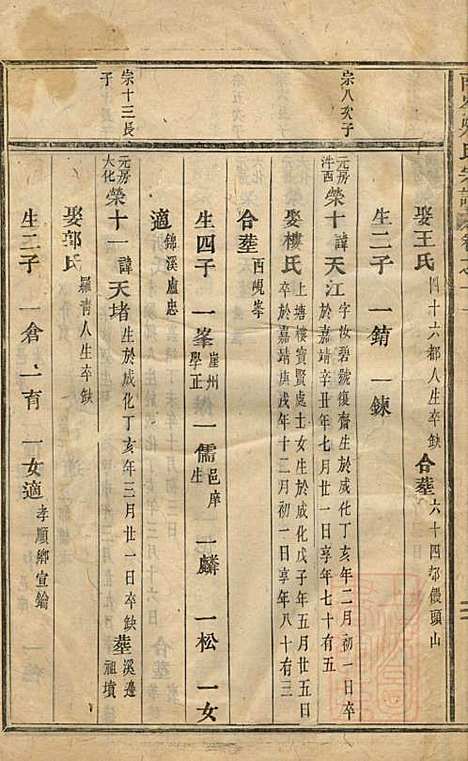 宗八次子
娶王氏 四十六都人生卒缺 合塟 六十四都饅頭山
生二子 一錡 一鍊
元房泮西 榮十 諱天江 字汝碧號復齋生於成化丁亥年二月初一卒
於嘉靖辛丑年七月廿一日享年七十有五
娶樓氏 上塘樓賓賢處士女生於成化戊子年五月廿五日
卒於嘉靖庚戌年十二月初一日享年八十有三
合塟 西峴峯
生四子 一峯 崖州學正 一儒 邑庠生 一麟 一松 一女
適 錦溪盧忠
宗十三長子
元房大化 榮十一 諱天堵 生於成化丁亥年三月廿一日卒缺 塟 溪邊祖墳
娶郭氏 羅青人生卒缺
生二子 一倉 一育 一女適 孝順鄉宣鑰